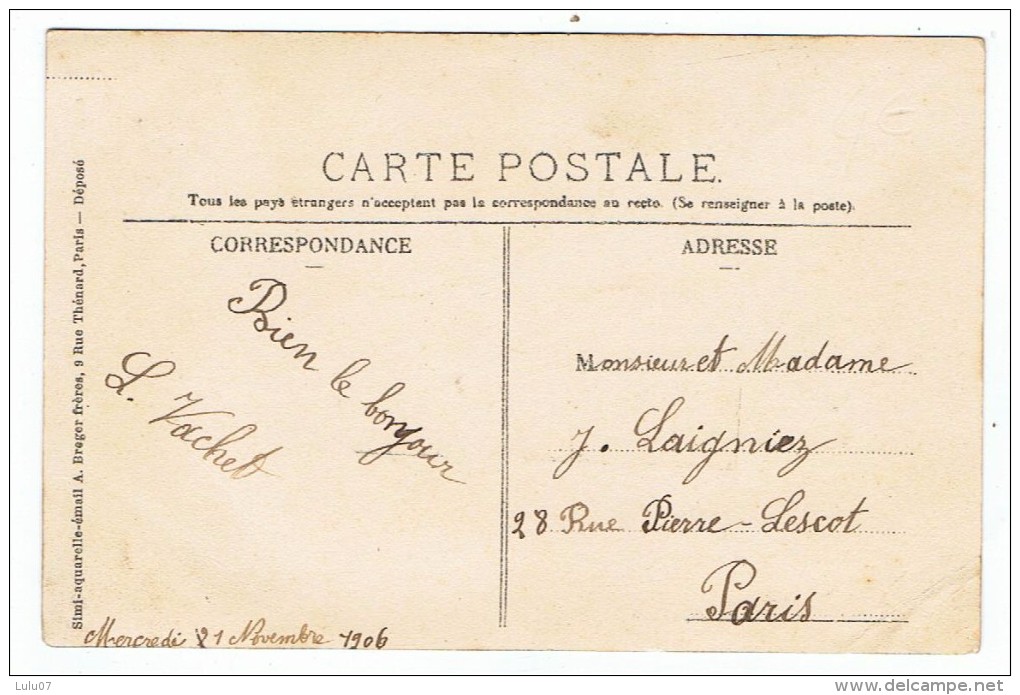 CARTE POSTALE.
Tous les pays étrangers n'acceptent pas la correspondance au recto. (Se renseigner à la poste).
CORRESPONDANCE
Bien le bonjour
L. Vachet
Mercredi 21 Novembre 1906
ADRESSE
Monsieur et Madame
J. Laigniez
28 Rue Pierre-Lescot
Paris
Simi-aquarelle-émail A. Breger frères, 9 Rue Thénard, Paris — Déposé
Lulu07
delcampe.net